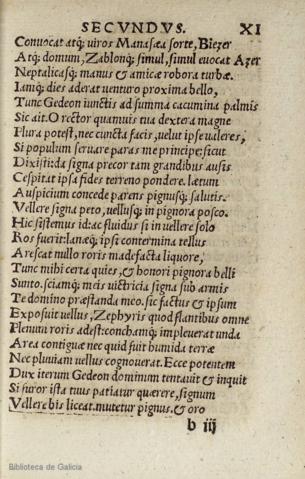 SECVNDVS. XI
Conuocat atq; uiros Manasæa sorte, Biezer
Atq; domum, Zablonq; simul, simul euocat Azer
Neptalicasq; manus & amicæ robora turbæ.
Iamq; dies aderat uenturo proxima bello,
Tunc Gedeon iunctis ad summa cacumina palmis
Sic ait. O rector quamuis tua dextera magne
Plura potest, nec cuncta facis, uelut ipse ualeres,
Si populum seruare paras me principe: sicut
Dixisti: da signa precor tam grandibus ausis
Cespitat ipsa fides terreno pondere. lætum
Auspicium concede parens pignusq; salutis.
Vellere signa peto, uellusq; in pignora posco.
Hic sistemus id: ac fluidus si in uellere solo
Ros fuerit: Ianæq; ipsi contermina tellus
Arescat nullo roris madefacta liquore,
Tunc mihi certa quies, & honori pignora belli
Sunto. sciamq; meis uictricia signa sub armis
Te domino præstanda meo. sic factus & ipsum
Exposuit uellus, Zephyris quod flantibus omne
Plenum roris adest: conchamq; impleuerat unda
Area contiguæ nec quid fuit humida terræ
Nec pluuiam uellus cognouerat. Ecce potentem
Dux iterum Gedeon dominum tentauit & inquit
Si furor ista tuus patiatur quærere, signum
Vellere bis liceat. mutetur pignus. & oro
b iij
Biblioteca de Galicia